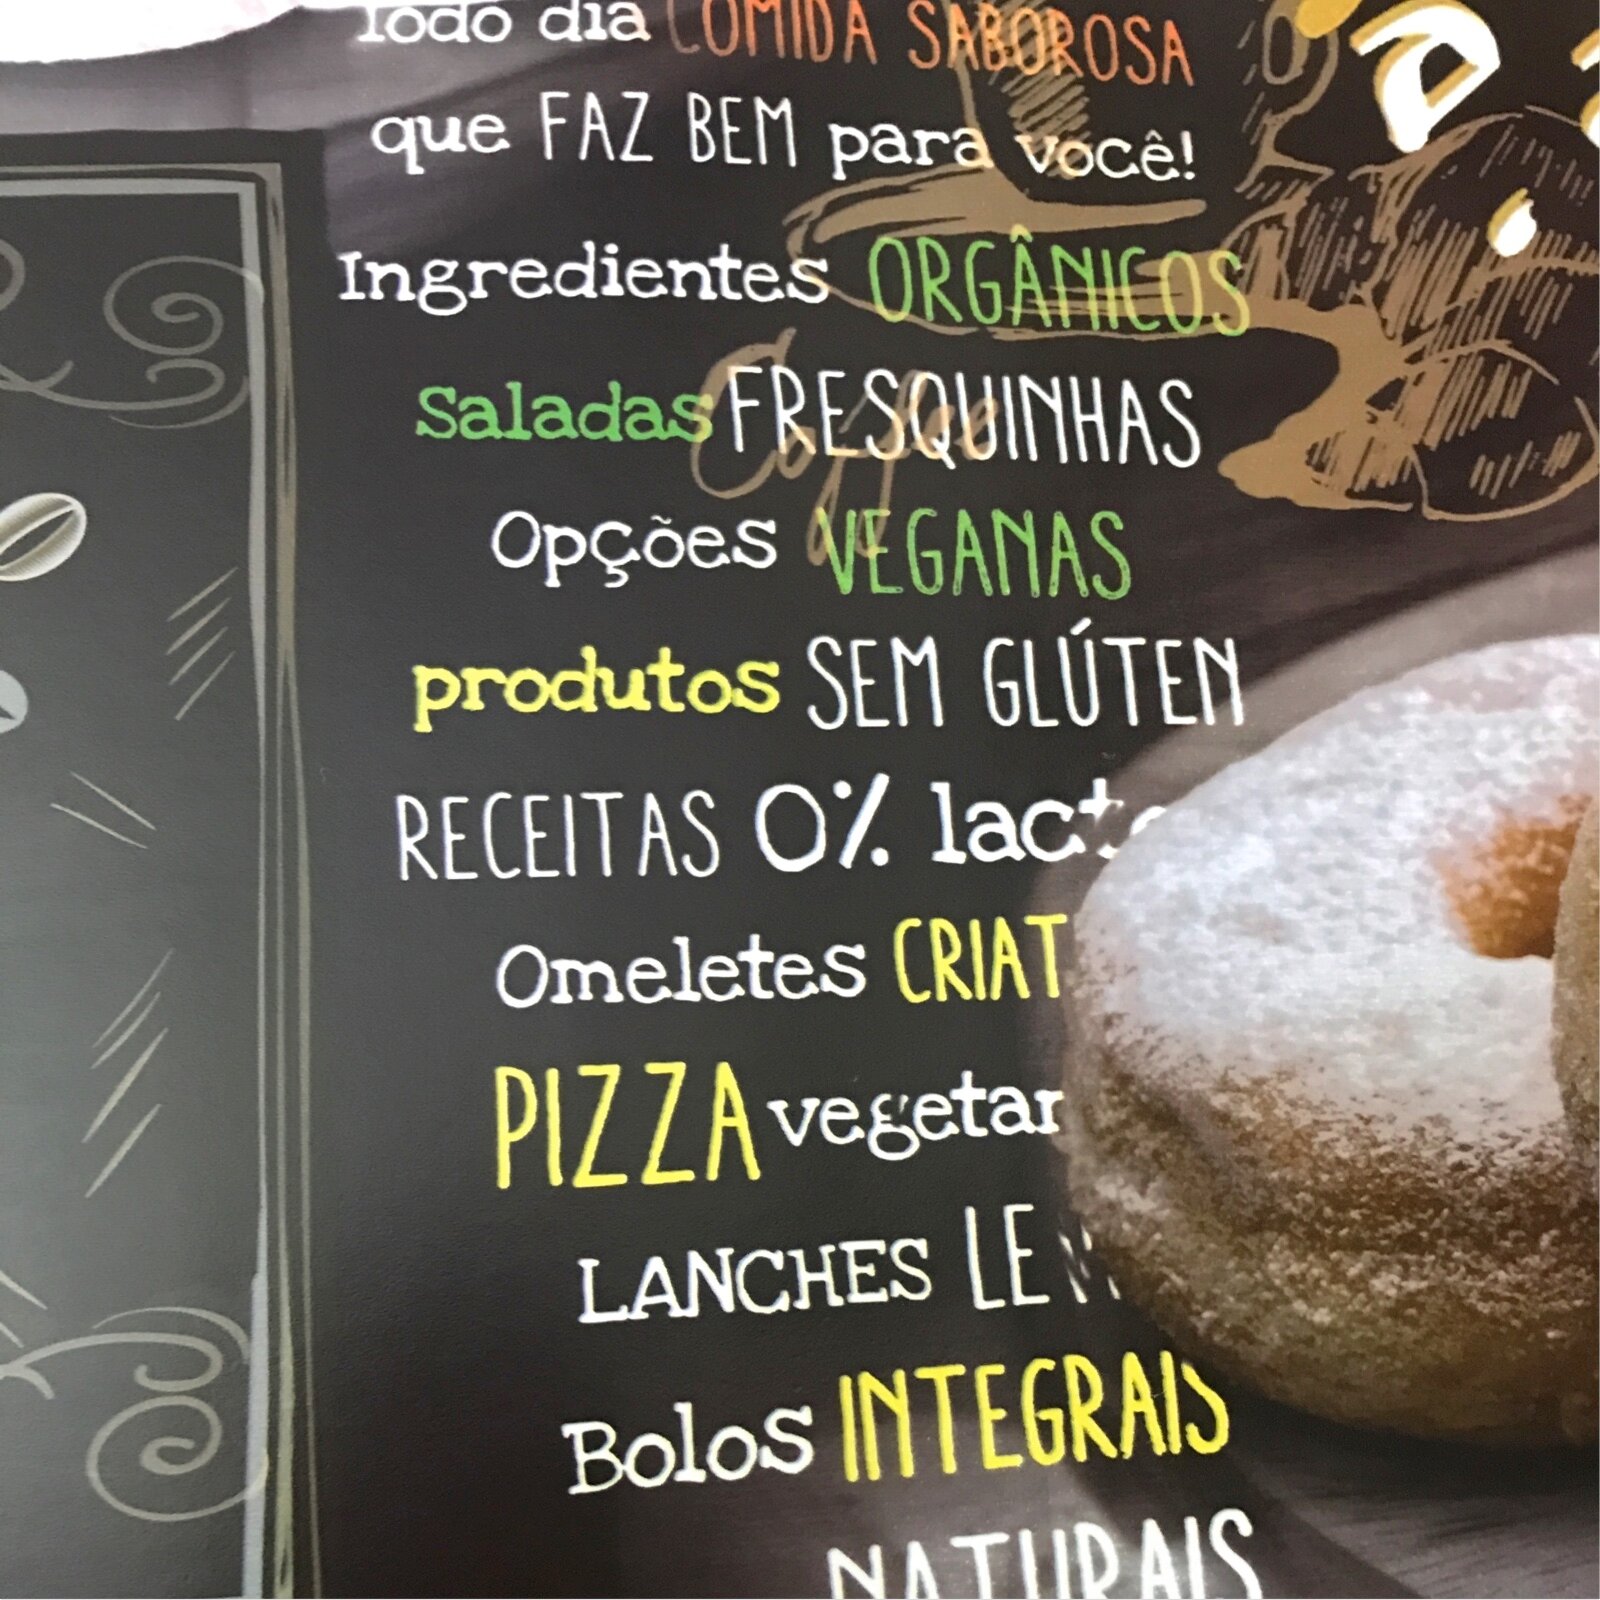 Todo dia COMIDA SABOROSA
que FAZ BEM para você!
Ingredientes ORGÂNICOS
Saladas FRESQUINHAS
Coffee
Opções VEGANAS
produtos SEM GLÚTEN
RECEITAS 0% lact
Omeletes CRIAT
PIZZA vegetar
LANCHES LE
Bolos INTEGRAIS
NATURAIS